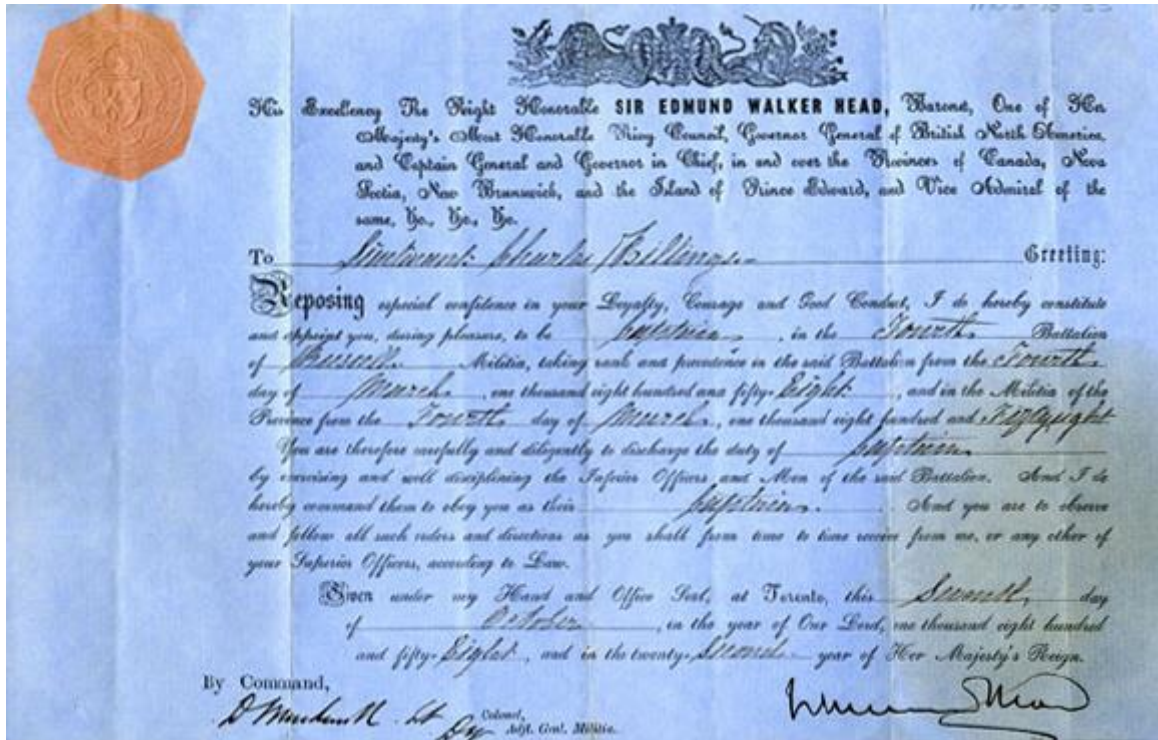 His Excellency The Right Honorable SIR EDMUND WALKER HEAD, Baronet, One of Her
Majesty's Most Honorable Privy Council, Governor General of British North America,
and Captain General and Governor in Chief, in and over the Provinces of Canada, Nova
Scotia, New Brunswick, and the Island of Prince Edward, and Vice Admiral of the
same, &c., &c., &c.
To Lieutenant Charles Billings Greeting:
Reposing especial confidence in your Loyalty, Courage and Good Conduct, I do hereby constitute
and appoint you, during pleasure, to be Captain, in the Fourth Battalion
of Russell Militia, taking rank and precedence in the said Battalion from the Fourth
day of March, one thousand eight hundred and fifty-Eight, and in the Militia of the
Province from the Fourth day of March, one thousand eight hundred and Fiftyeight
You are therefore carefully and diligently to discharge the duty of Captain
by exercising and well disciplining the Inferior Officers and Men of the said Battalion. And I do
hereby command them to obey you as their Captain. And you are to observe
and follow all such orders and directions as you shall from time to time receive from me, or any other of
your Superior Officers, according to Law.
Given under my Hand and Office Seal, at Toronto, this Seventh day
of October, in the year of Our Lord, one thousand eight hundred
and fifty-Eight, and in the twenty-Second year of Her Majesty's Reign.
By Command,
Lt Colonel,
Dy Adjt. Genl. Militia.